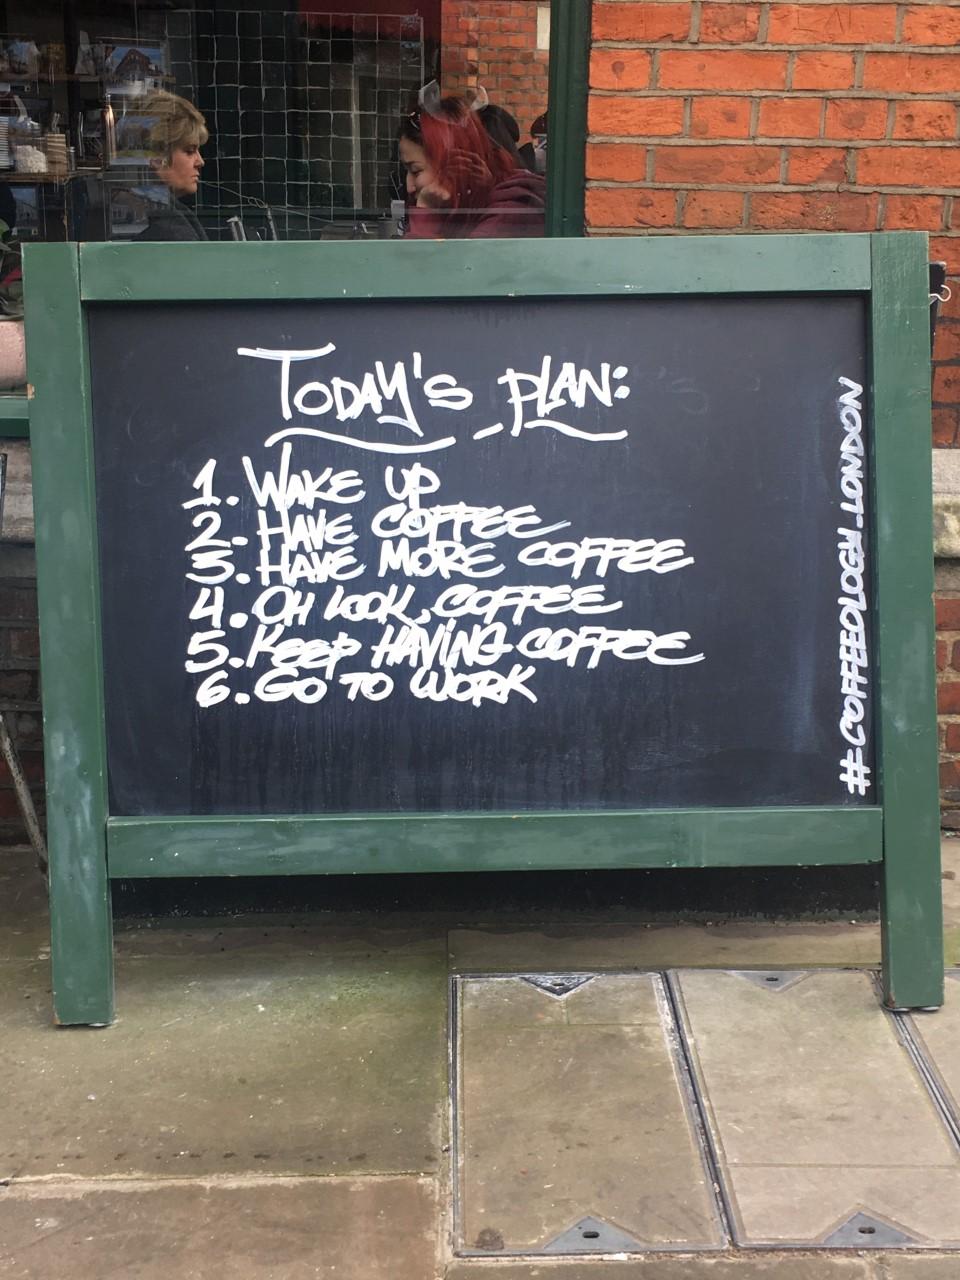 TODAY'S PLAN:
1. WAKE UP
2. HAVE COFFEE
3. HAVE MORE COFFEE
4. OH LOOK, COFFEE
5. KEEP HAVING COFFEE
6. GO TO WORK
#COFFEEOLOGY.LONDON